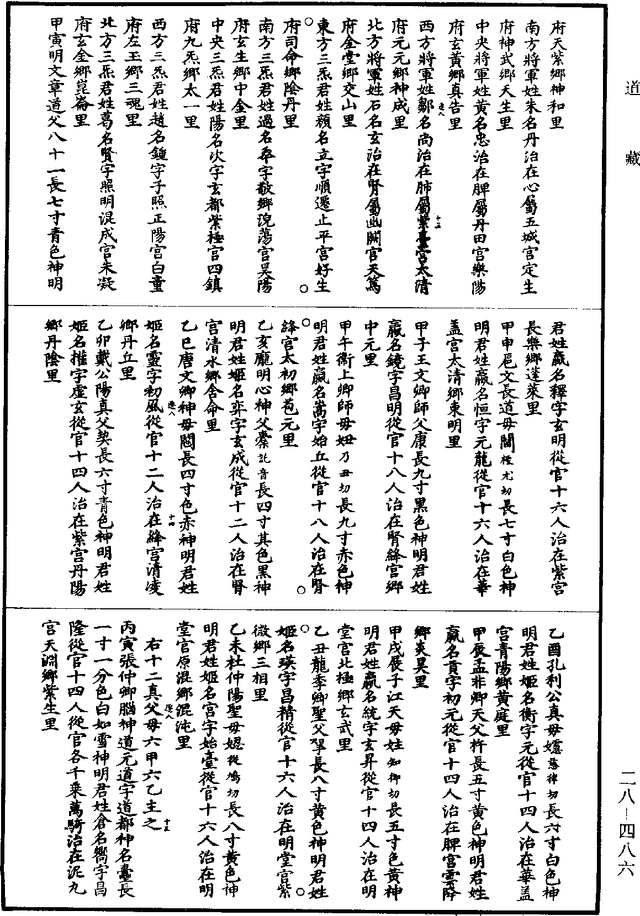 道藏
府天紫鄉神和里
南方將軍姓朱名丹治在心屬五城宮定生
府神武鄉天生里
中央將軍姓黃名忠治在脾屬丹田宮樂陽
府玄黃鄉真告里
西方將軍姓鄒名尚治在肺屬紫臺宮太清
府元元鄉神成里
北方將軍姓石名玄治在腎屬幽闕宮天萬
府金堂鄉交山里
東方三炁君姓顏名立字順遷止平宮好生
府司命鄉陰丹里
南方三炁君姓過名奉字敬鄉滉蕩宮吴陽
府玄生鄉中金里
中央三炁君姓陽名次字玄都紫極宮四鎮
府九炁鄉太一里
西方三炁君姓趙名鍾字子照正陽宮白童
府左玉鄉三魂里
北方三炁君姓葛名賢字照明混成宮朱凝
府玄金鄉崑崙里
甲寅明文章道父八十一長七寸青色神明
君姓嬴名釋字玄明從官十六人治在紫宮
長樂鄉蓬萊里
甲申扈文長道母闇長七寸白色神
明君姓嬴名恒字元龍從官十六人治在華
蓋宮太清鄉東明里
甲子王文卿師父康長九寸黑色神明君姓
嬴名鏡字昌明從官十八人治在腎絳宮鄉
中元里
甲午衞上卿師母妞乃丑切長九寸赤色神
明君姓嬴名嵩字始丘從官十八人治在腎
絳宮太初鄉苞元里
乙亥龐明心神父橐託音長四寸其色黑神
明君姓姬名弈字玄成從官十二人治在腎
宮清水鄉舍命里
乙巳唐文卿神母閻長四寸色赤神明君姓
姬名靈字初風從官十二人治在絳宮清凌
鄉丹丘里
乙卯戴公陽真父契長六寸青色神明君姓
姬名摧字虛玄從官十四人治在紫宮丹陽
鄉丹陰里
乙酉孔利公真母長六寸白色神
明君姓姬名衡字元從官十四人治在華蓋
宮青陽鄉黃庭里
甲辰孟非卿天父杵長五寸黃色神明君姓
嬴名貢字初元從官十四人治在脾宮雲降
鄉炎昊里
甲戌展子江天母妵知御切長五寸色黃神
明君姓嬴名統字玄昇從官十四人治在明
堂宮北極鄉玄武里
乙丑龍季卿聖父犖長八寸黃色神明君姓
姬名瑛字昌精從官十六人治在明堂宮紫
微鄉三相里
乙未杜仲陽聖母媤從鳩切長八寸黃色神
明君姓姬名宮字始臺從官十六人治在明
堂宮原混鄉混沌里
右十二真父母六甲六乙主之
丙寅張仲卿腦神道元道字道都神名橐長
一寸一分色白如雪神明君姓倉名嚮字昌
隆從官十四人從官各千乘萬騎治在泥丸
宮天淵鄉紫生里
二八—四八六